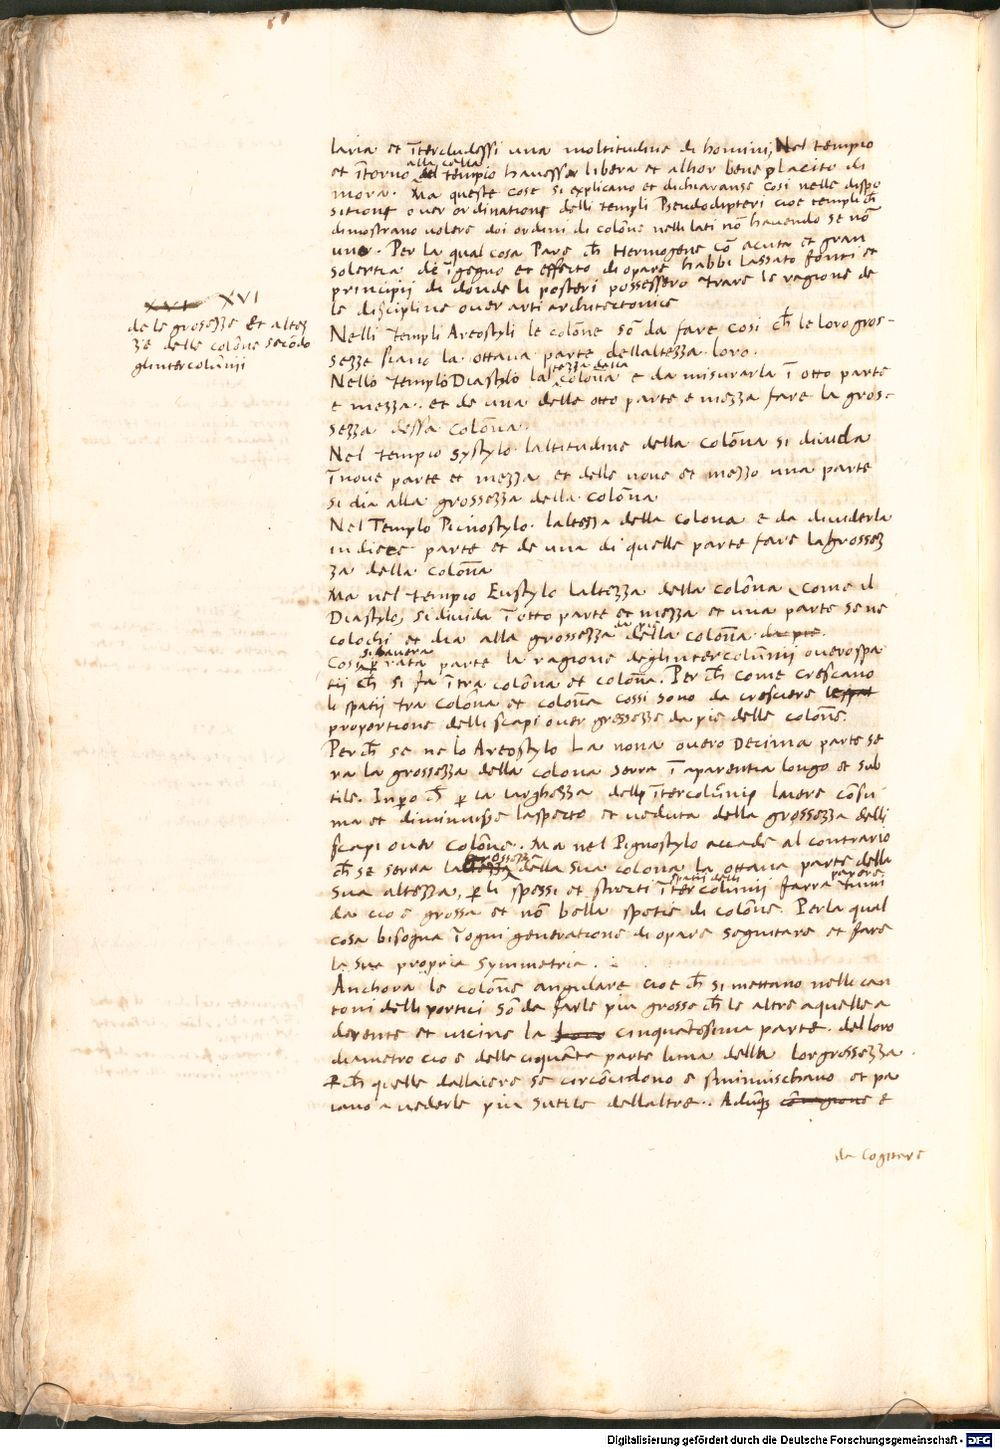 laria et ĩtercludessi una moltitudine di homini, Nel tempio
et ĩtorno alla cella del tempio havesse libera et alhor beneplacito di
mora. Ma queste cose si explicano et dichiaranse cosi nelle dispo
sitione over ordinatione delli templi Pseudodipteri cioe templi ch̃
dimostrano volere doi ordini di colõne nelli lati nõ havendo se nõ
uno. Per la qual cosa Pare ch̃ Hermogene cõ acuta et gran
solertia de ĩgegno et effecto di opare habbi lassato fonti et
principii di donde li posteri possessero trare le ragione de
le discipline over arti architectonice
XVI XVI
de le grosezze et altez
ze delle colõne secõdo
glintercolũnii
Nelli templi Areostyli le colõne sõ da fare cosi ch̃ le loro gros-
sezze siano la ottava parte dellaltezza loro.
Nello templo Diastylo laltezza della colona e da misurarla ĩ otto parte
e mezza. et de una delle otto parte e mezza fare la gros-
sezza dessa colõna.
Nel tempio Systylo laltitudine della colõna si divida
ĩ nove parte et mezza et delle nove et mezzo una parte
si dia alla grossezza della colõna
Nel Templo Picnostylo. laltezza della colona e da dividerla
in diece parte et de una di quelle parte fare la grossez
za della colõna
Ma nel tempio Eustylo laltezza della colõna, come il
Diastylo, si divida ĩ otto parte et mezza et una parte se ne
colochi et dia alla grossezza della colõna da pie
Cosi si havera p rata parte la ragione deglintercolũnii overo spa
tii ch̃ si fa ĩtra colõna et colõna. Per ch̃ come crescano
li spatii tra colõna et colõna cossi sono da crescere le
proportione delli scapi over grossezze da pie delle colõne.
Perch̃ se ne lo Areostylo La nona overo Decima parte se
ra la grossezza della colona serra ĩ aparentia longo et sub
tile. Inpero ch̃ p la larghezza delli ĩtercolũnii laiere cõsu
ma et diminuisse laspecto et veduta della grossezza delli
scapi over colõne. Ma nel Pignostylo accade al contrario
ch̃ se serra la grossezza della sua colona la ottava parte della
sua altezza, p li spessi et stretti spatii delli ĩtercolũnii farra parere
da cio e grossa et nõ bella spetie di colõne. Perla qual
cosa bisogna ĩ ogni generatione di opare seguitare et fare
la sua propria Symmetria.
Anchora le colõne angulare cioe ch̃ si mettano nelli can
toni delli portici sõ da farle piu grosse ch̃ le altre a quelle a
derente et vicine la cinquantesima parte. del loro
diametro cio e delle ciquãta parte luna della lor grossezza
P ch̃ quelle dallaiere se circõcidono e sminuischano et pa
iano a vederle piu sutile dellaltre. Adũq e
da cogitare
Digitalisierung gefördert durch die Deutsche Forschungsgemeinschaft - DFG